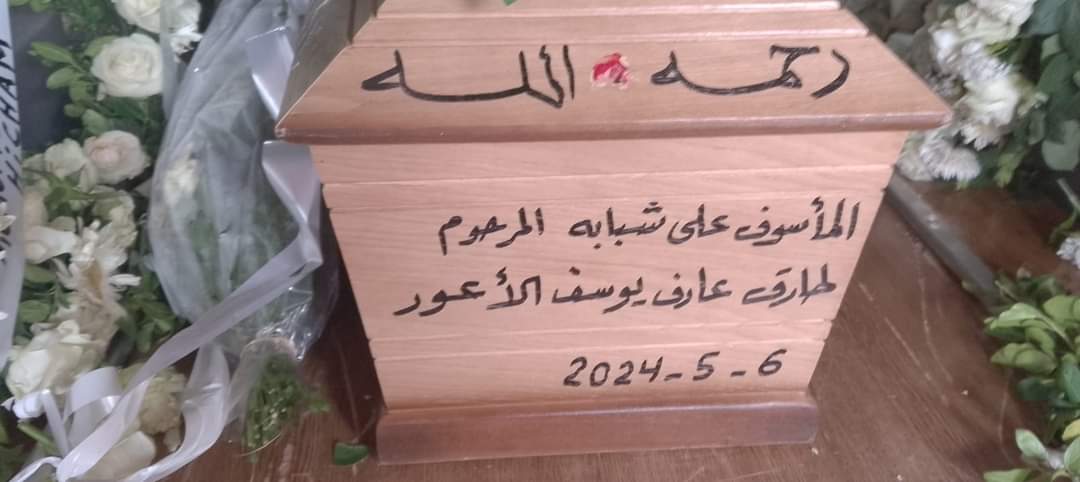 رحمه الله
المأسوف على شبابه المرحوم
طارق عارف يوسف الأعور
2024 - 5 - 6
HICHAM